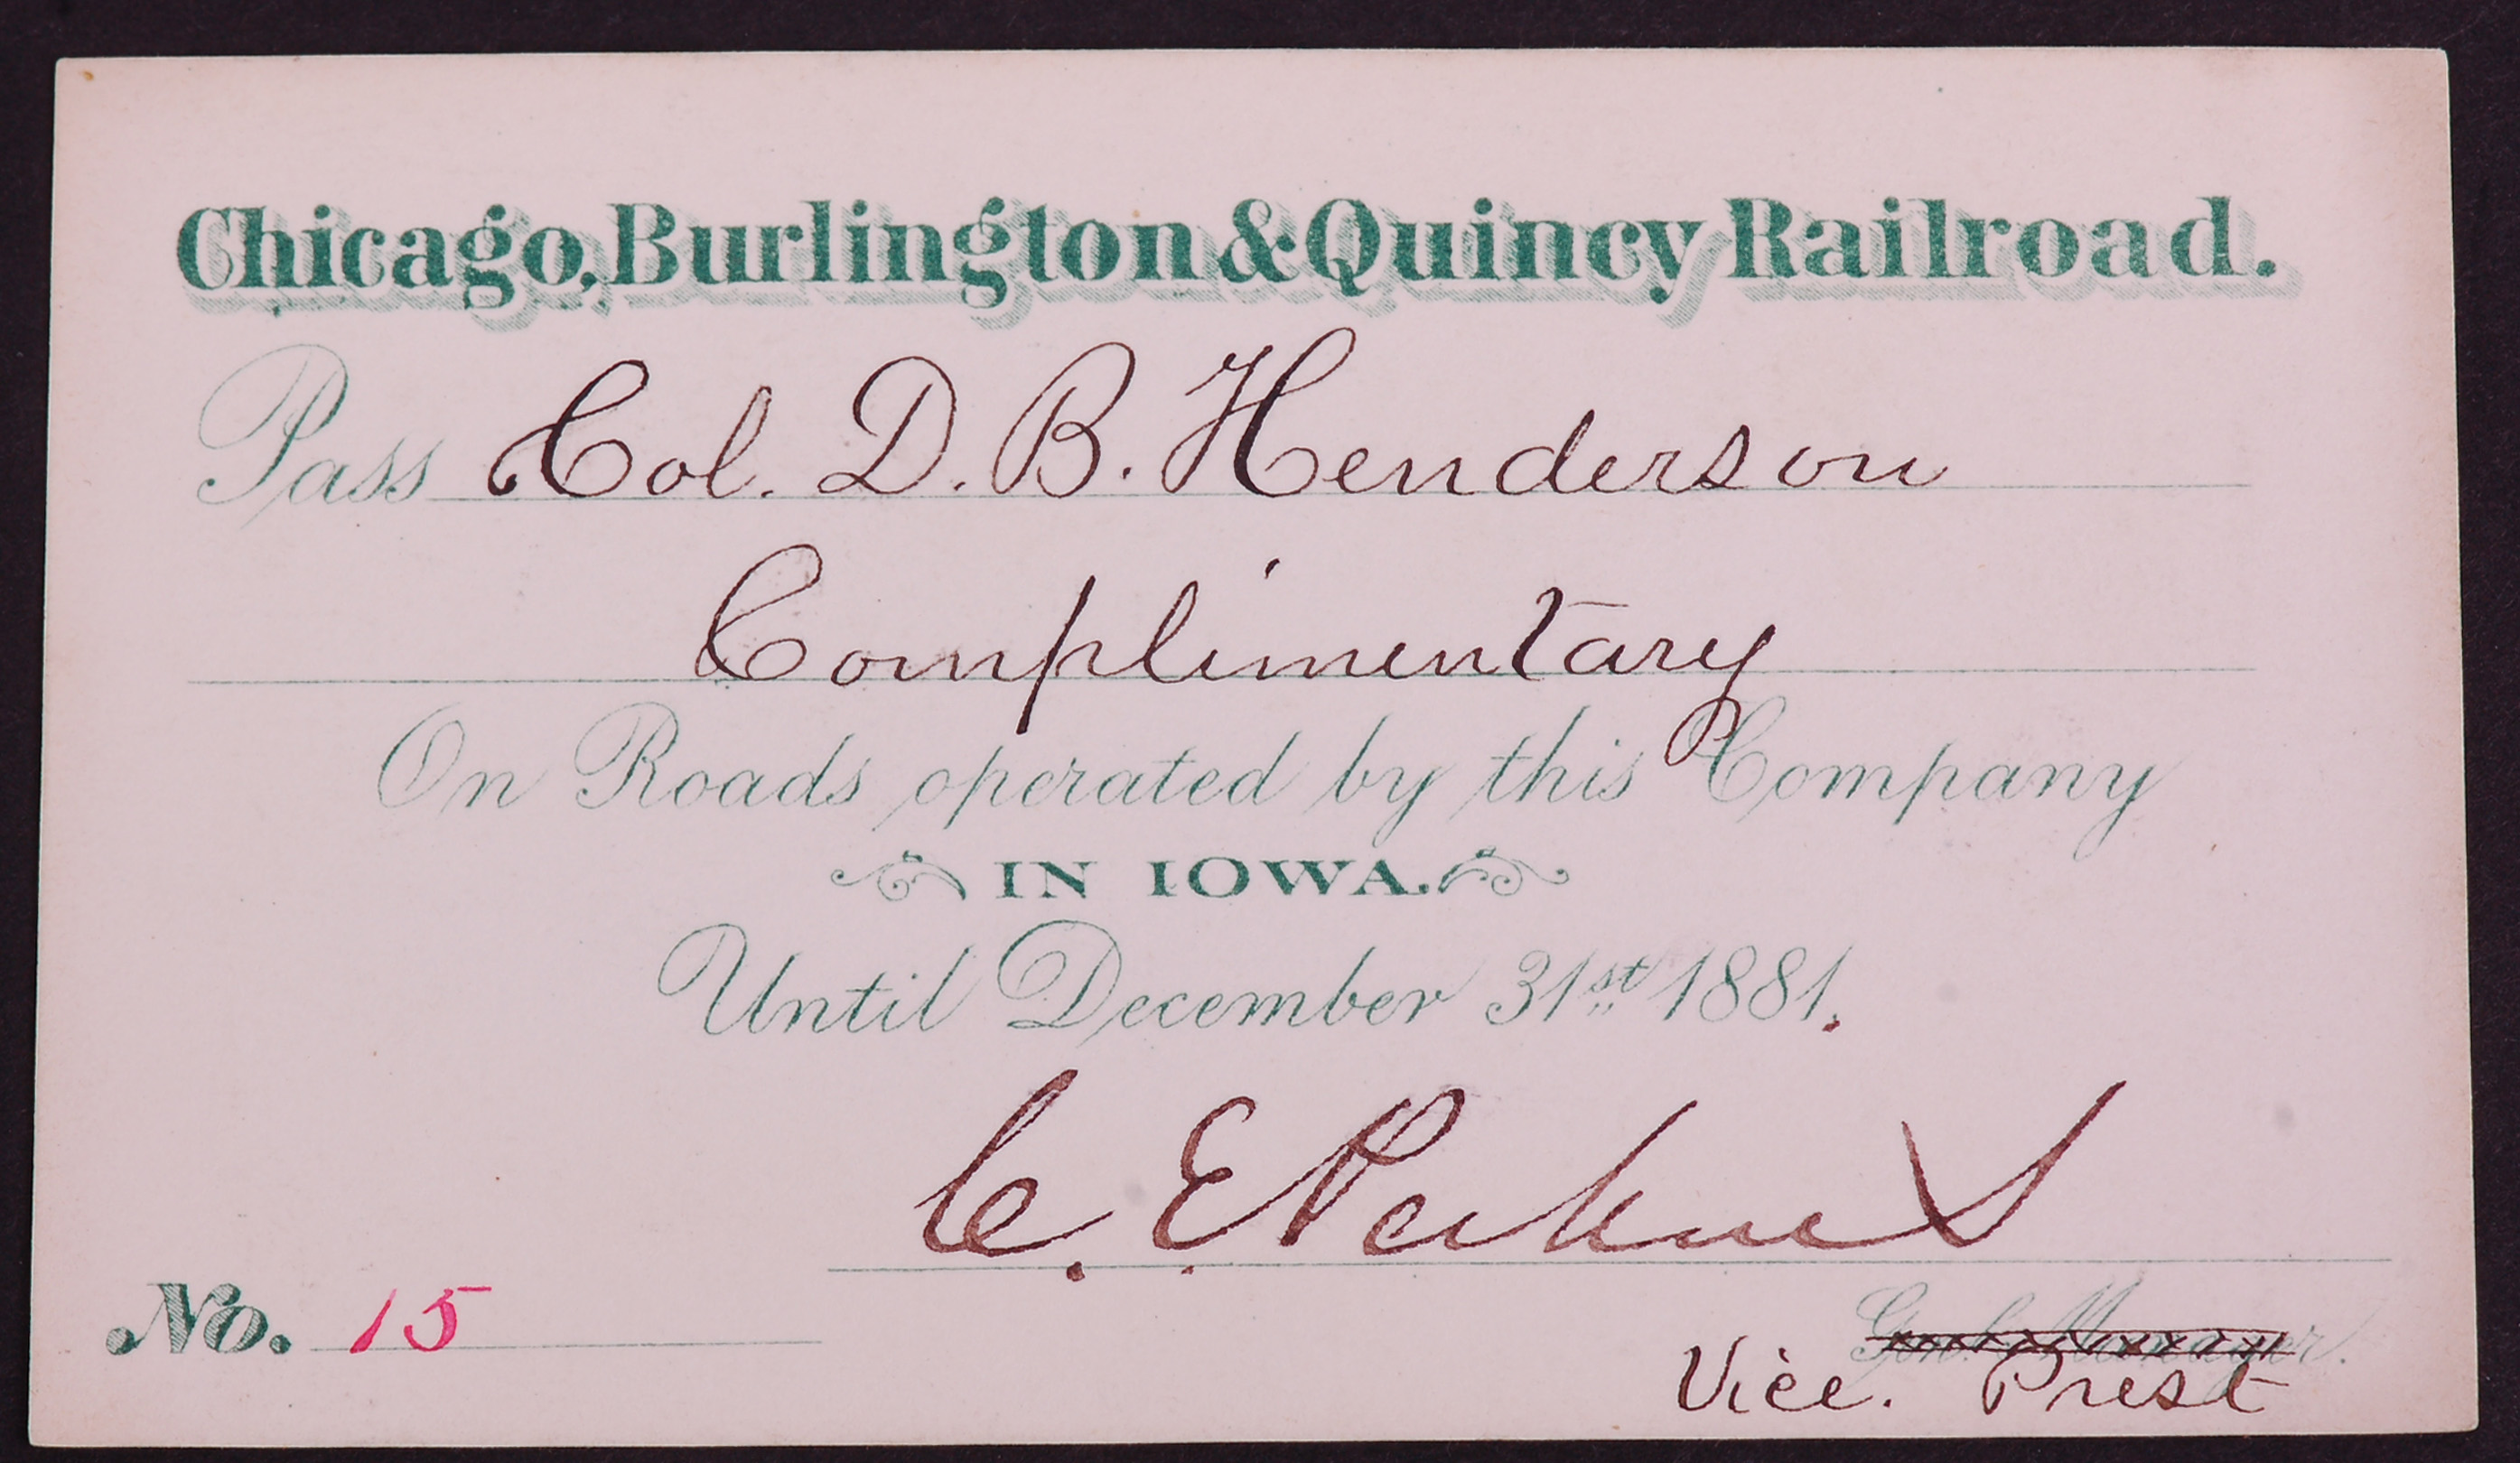 Chicago, Burlington & Quincy Railroad.
Pass Col. D. B. Henderson
Complimentary
On Roads operated by this Company
IN IOWA.
Until December 31st 1881.
C. E Perkins
No. 15
Genl. Manager.
Vice. Prest